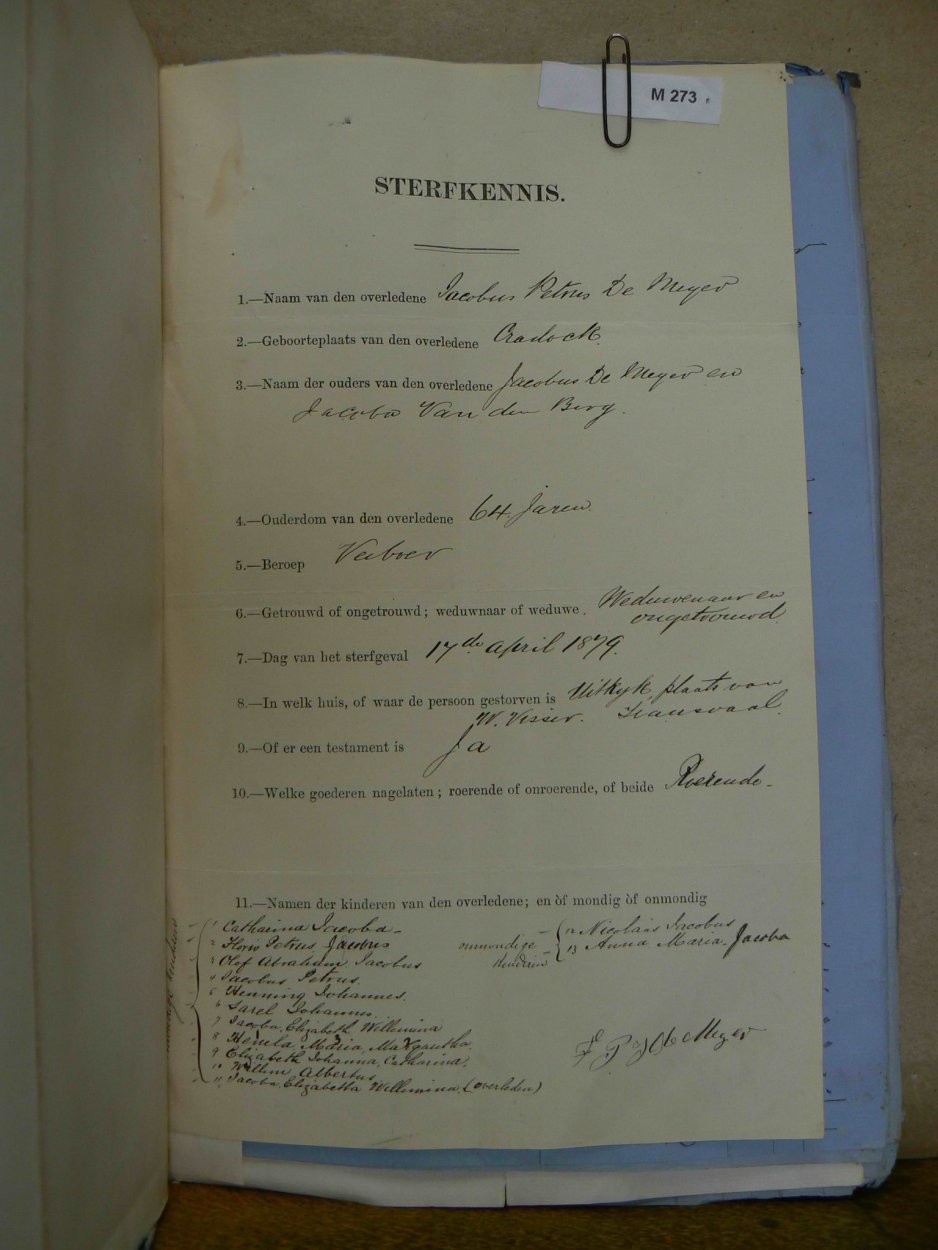 M 273
STERFKENNIS.
1.—Naam van den overledene Jacobus Petrus De Meyer
2.—Geboorteplaats van den overledene Cradock.
3.—Naam der ouders van den overledene Jacobus De Meyer en
Jacoba Van den Berg.
4.—Ouderdom van den overledene 64 Jaren.
5.—Beroep Veeboer
6.—Getrouwd of ongetrouwd; weduwnaar of weduwe. Weduwenaar en
ongetrouwd
7.—Dag van het sterfgeval 17de April 1879.
8.—In welk huis, of waar de persoon gestorven is Uitkyk, plaats van
W. Visser. Transvaal.
9.—Of er een testament is Ja
10.—Welke goederen nagelaten; roerende of onroerende, of beide Roerende.
11.—Namen der kinderen van den overledene; en òf mondig òf onmondig
1 Catharina Jacoba
2 Floris Petrus Jacobus
3 Olof Abraham Jacobus
4 Jacobus Petrus
5 Henning Johannes.
6 Sarel Johannes.
7 Jacoba Elizabeth Willemina
8 Maria, Margaretha
9 Elizabeth Johanna, Catharina,
10 Willem Albertus
11 Jacoba Elizabetha Willemina, (overleden)
onmondige kinderen
12 Nicolaas Jacobus
13 Anna Maria Jacoba
de Meyer